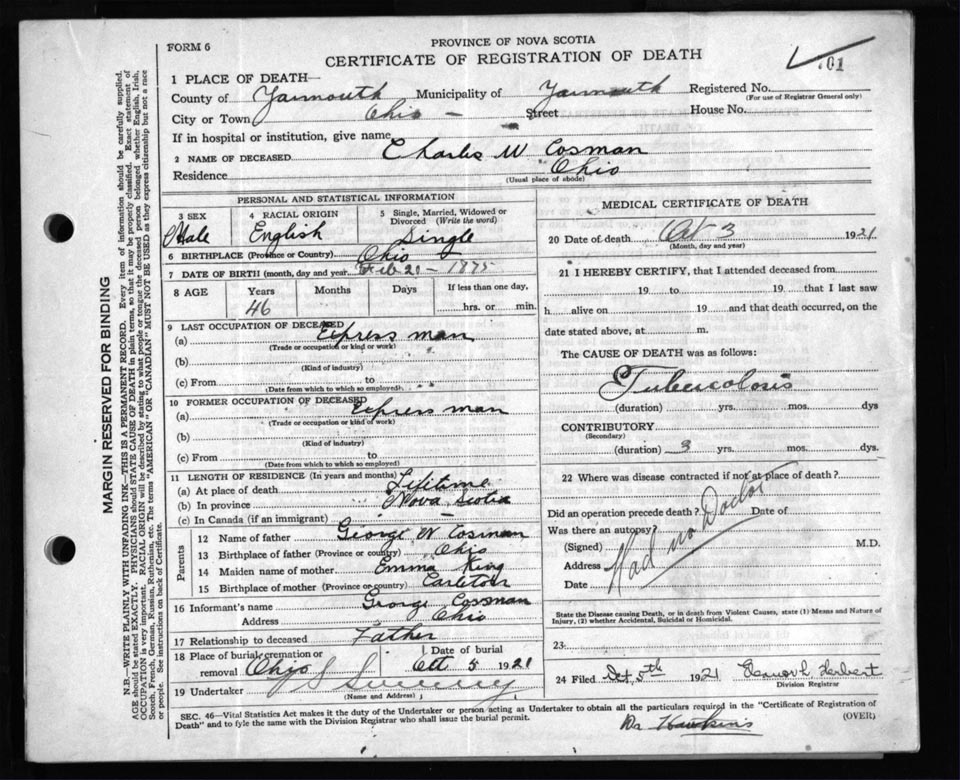 FORM 6
PROVINCE OF NOVA SCOTIA
CERTIFICATE OF REGISTRATION OF DEATH
101
1 PLACE OF DEATH—
County of Yarmouth Municipality of Yarmouth Registered No.
(For use of Registrar General only)
City or Town Ohio — Street House No.
If in hospital or institution, give name
2 NAME OF DECEASED Charles W Cosman
Residence Ohio
(Usual place of abode)
PERSONAL AND STATISTICAL INFORMATION
3 SEX Male
4 RACIAL ORIGIN English
5 Single, Married, Widowed or Divorced (Write the word) Single
6 BIRTHPLACE (Province or Country) Ohio
7 DATE OF BIRTH (month, day and year) Feb 20 - 1875
8 AGE Years Months Days If less than one day,
46 hrs. or min.
9 LAST OCCUPATION OF DECEASED
(a) Express man
(Trade or occupation or kind or work)
(b)
(Kind of industry)
(c) From to
(Date from which to which so employed)
10 FORMER OCCUPATION OF DECEASED
(a) Express man
(Trade or occupation or kind of work)
(b)
(Kind of industry)
(c) From to
(Date from which to which so employed)
11 LENGTH OF RESIDENCE (In years and months)
(a) At place of death Lifetime
(b) In province Nova Scotia
(c) In Canada (if an immigrant)
Parents
12 Name of father George W Cosman
13 Birthplace of father (Province or country) Ohio
14 Maiden name of mother Emma King
15 Birthplace of mother (Province or country) Carleton
16 Informant's name George Cosman
Address Ohio
17 Relationship to deceased Father
18 Place of burial, cremation or removal Ohio
Date of burial Oct 5 1921
19 Undertaker J Sweeney
(Name and Address)
MEDICAL CERTIFICATE OF DEATH
20 Date of death Oct 3 1921
(Month, day and year)
21 I HEREBY CERTIFY, that I attended deceased from
19 to 19 that I last saw
h alive on 19 and that death occurred, on
date stated above, at m.
The CAUSE OF DEATH was as follows:
Tuberculosis
(duration) yrs. mos. dys
CONTRIBUTORY
(Secondary)
(duration) 3 yrs. mos. dys.
22 Where was disease contracted if not at place of death?
Did an operation precede death? Date of
Was there an autopsy?
(Signed) M.D.
Address
Date
Had no Doctor
State the Disease causing Death, or in death from Violent Causes, state (1) Means and Nature of Injury, (2) whether Accidental, Suicidal or Homicidal.
23
24 Filed Oct 5th 1921 Herbert
Division Registrar
SEC. 46—Vital Statistics Act makes it the duty of the Undertaker or person acting as Undertaker to obtain all the particulars required in the "Certificate of Registration of
Death" and to fyle the same with the Division Registrar who shall issue the burial permit.
(OVER)
Dr Hawkins
MARGIN RESERVED FOR BINDING
N.B.—WRITE PLAINLY WITH UNFADING INK—THIS IS A PERMANENT RECORD. Every item of information should be carefully supplied.
AGE should be stated EXACTLY. PHYSICIANS should STATE CAUSE OF DEATH in plain terms, so that it may be properly classified. Exact statement of
OCCUPATION is very important. RACIAL ORIGIN will be described by stating to what people or tongue the deceased person belonged whether English, Irish,
Scotch, French, German, Russian, Ruthenian, etc. The terms "AMERICAN" or "CANADIAN" MUST NOT BE USED as they express citizenship but not a race
or people. See instructions on back of Certificate.